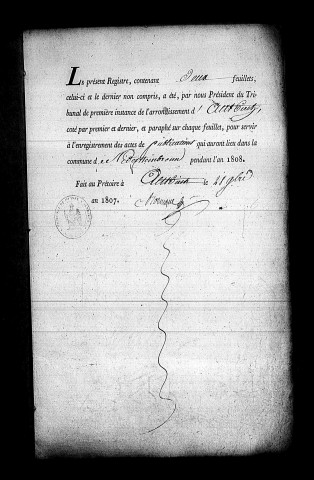 Le présent Registre, contenant Deux feuillets,
celui-ci et le dernier non compris, a été, par nous Président du Tri-
bunal de première instance de l'arrondissement d'
coté par premier et dernier, et paraphé sur chaque feuillet, pour servir
à l'enregistrement des actes de publications qui auront lieu dans la
commune de pendant l'an 1808.
Fait au Prétoire à le 21 9bre
an 1807.